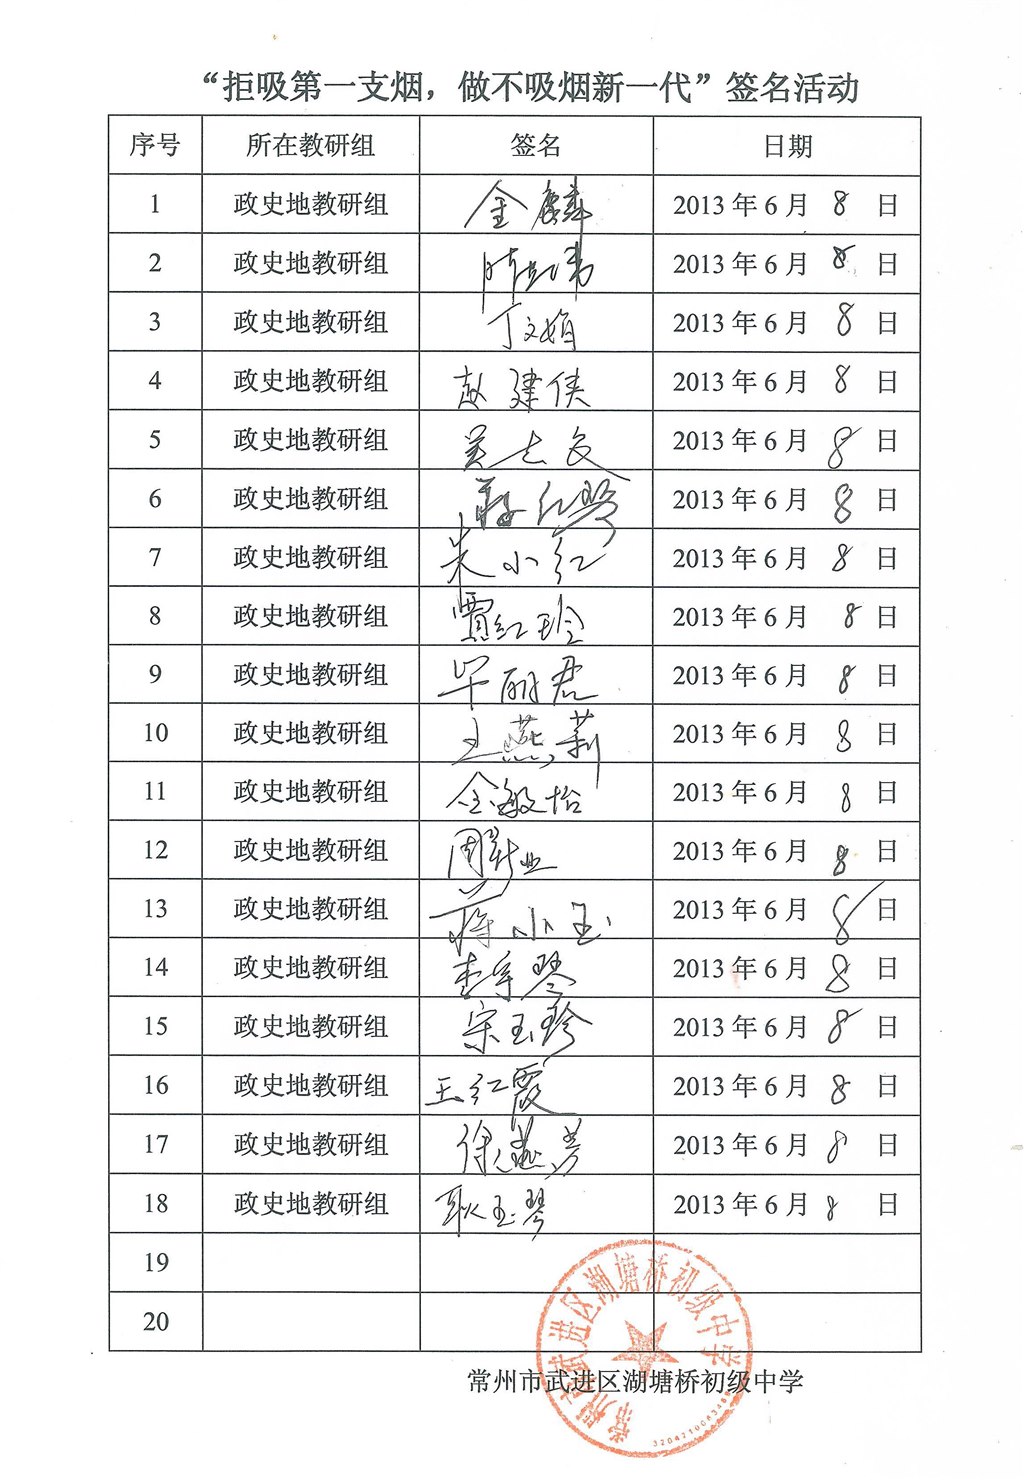 “拒吸第一支烟，做不吸烟新一代”签名活动
序号 所在教研组 签名 日期
1 政史地教研组 金麟 2013年6月8日
2 政史地教研组 2013年6月8日
3 政史地教研组 丁文娟 2013年6月8日
4 政史地教研组 赵建侠 2013年6月8日
5 政史地教研组 吴志良 2013年6月8日
6 政史地教研组 蒋红琴 2013年6月8日
7 政史地教研组 朱小红 2013年6月8日
8 政史地教研组 贾红玲 2013年6月8日
9 政史地教研组 毕丽君 2013年6月8日
10 政史地教研组 王燕莉 2013年6月8日
11 政史地教研组 金敏怡 2013年6月8日
12 政史地教研组 2013年6月8日
13 政史地教研组 蒋小玉 2013年6月8日
14 政史地教研组 2013年6月8日
15 政史地教研组 宋玉珍 2013年6月8日
16 政史地教研组 王红霞 2013年6月8日
17 政史地教研组 2013年6月8日
18 政史地教研组 耿玉琴 2013年6月8日
19
20
常州市武进区湖塘桥初级中学
常州市武进区湖塘桥初级中学